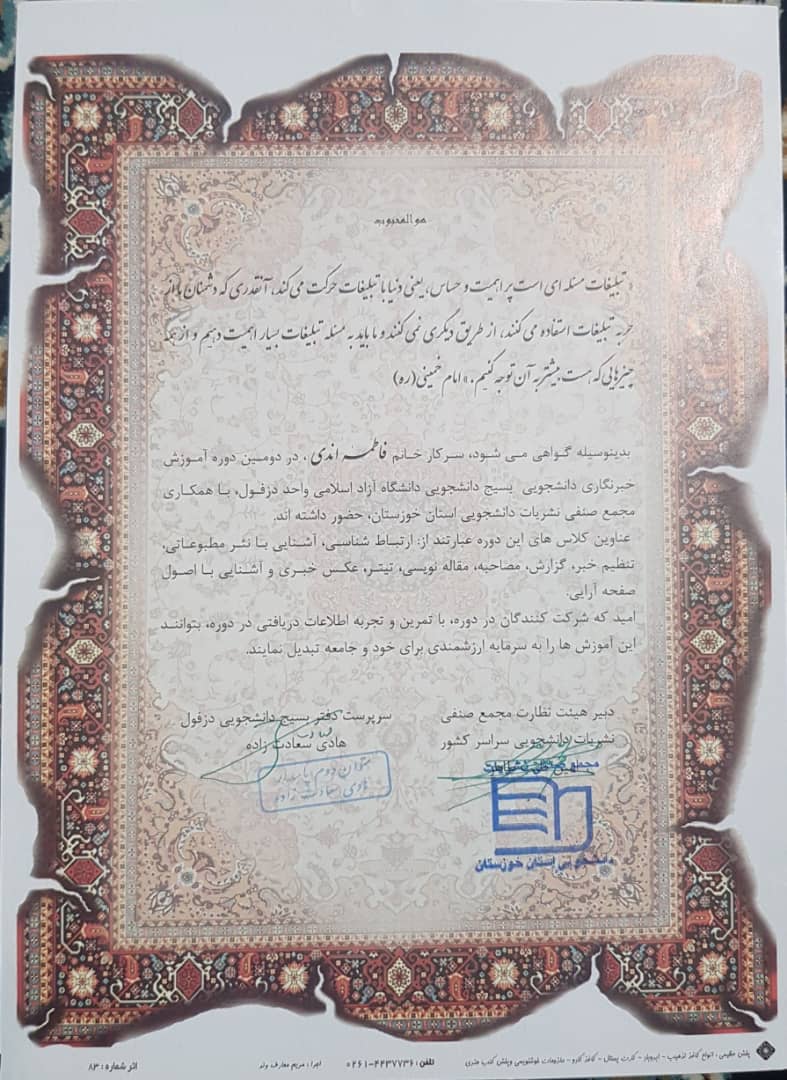 هو المحبوب
« تبلیغات مسئله ای است پر اهمیت و حساس، یعنی دنیا با تبلیغات حرکت می کند، آنقدری که دشمنان ما از
حربه تبلیغات استفاده می کنند، از طریق دیگری نمی کنند و ما باید به مسئله تبلیغات بسیار اهمیت دهیم و از همه
چیزهایی که هست بیشتر به آن توجه کنیم. » امام خمینی(ره)
بدینوسیله گواهی می شود، سرکار خانم فاطمه اندی ، در دومین دوره آموزش
خبرنگاری دانشجویی بسیج دانشجویی دانشگاه آزاد اسلامی واحد دزفول، با همکاری
مجمع صنفی نشریات دانشجویی استان خوزستان، حضور داشته اند.
عناوین کلاس های این دوره عبارتند از: ارتباط شناسی، آشنایی با نثر مطبوعاتی،
تنظیم خبر، گزارش، مصاحبه، مقاله نویسی، تیتر، عکس خبری و آشنایی با اصول
صفحه آرایی.
امید که شرکت کنندگان در دوره، با تمرین و تجربه اطلاعات دریافتی در دوره، بتوانند
این آموزش ها را به سرمایه ارزشمندی برای خود و جامعه تبدیل نمایند.
دبیر هیئت نظارت مجمع صنفی
نشریات دانشجویی سراسر کشور
سرپرست دفتر بسیج دانشجویی دزفول
هادی سعادت زاده
ستوان دوم پاسدار
هادی سعادت زاده
دانشجویی استان خوزستان
پخش مقیمی : انواع کاغذ تذهیب - ابروباد - کارت پستال - کاغذ کادو - ملزومات خوشنویسی وپخش کتب هنری
تلفن : ۰۲۶۱-۴۴۳۷۷۳۶
اجرا : مریم معارف وند
اثر شماره : ۸۳